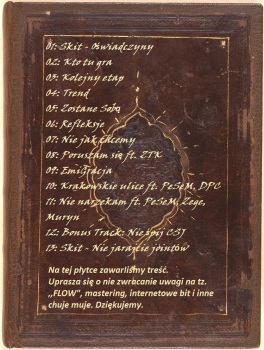 01: Skit - Oświadczyny
02: Kto tu gra
03: Kolejny etap
04: Trend
05: Zostane Sobą
06: Refleksje
07: Nie jak chcemy
08: Poruszam się ft. ZTK
09: Emigracja
10: Krakowskie ulice ft. PeSeM, DPC
11: Nie narzekam ft. PeSeM, Zege,
Muryn
12: Bonus Track: Nie śpij CSJ
13: Skit - Nie jarajcie jointów
Na tej płytce zawarliśmy treść.
Uprasza się o nie zwracanie uwagi na tz.
,,FLOW", mastering, internetowe bit i inne
chuje muje. Dziękujemy.